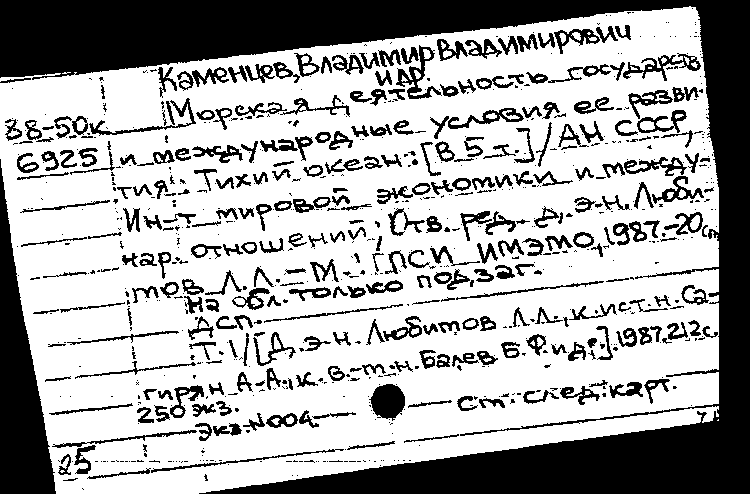 Каменцев, Владимир Владимирович
и др.
Морская деятельность государств
88-50к
6925 и международные условия ее разви-
тия : Тихий океан : [В 5 т.] / АН СССР,
Ин-т мировой экономики и между-
нар. отношений ; Отв. ред. д. э.н. Люби-
мов Л.Л. – М. : ГПСИ ИМЭМО, 1987. – 20 см
На обл. только подзаг.
ДСП.
Т. 1 / [Д. э.н. Любимов Л.Л., к. ист. н. Са-
гирян А.А., к. в.-т. н. Балев Б.Ф. и др.]. 1987. 212 с.
250 экз.
Экз. N 004. См. след. карт.
25